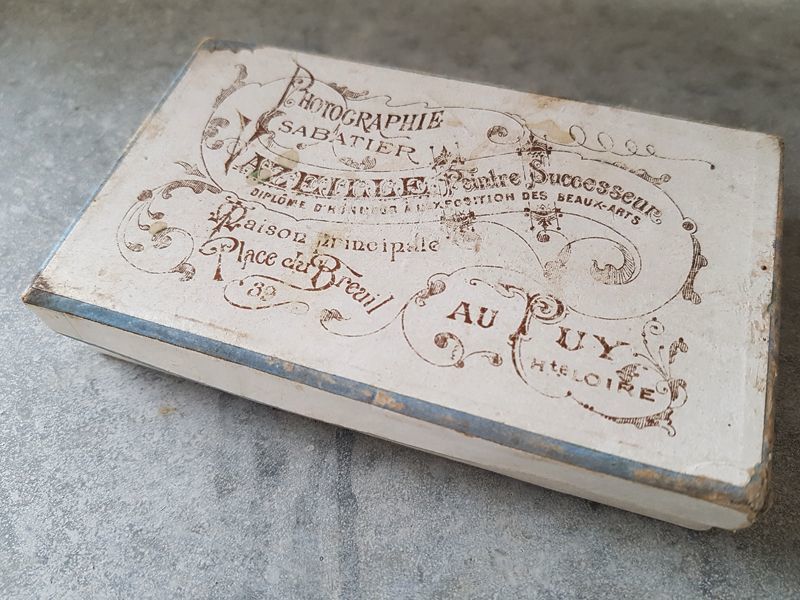 PHOTOGRAPHIE
SABATIER
VAZEILLE Peintre Successeur
DIPLÔME D'HONNEUR À L'EXPOSITION DES BEAUX-ARTS
Maison principale
Place du Breuil
AU PUY
Hte LOIRE